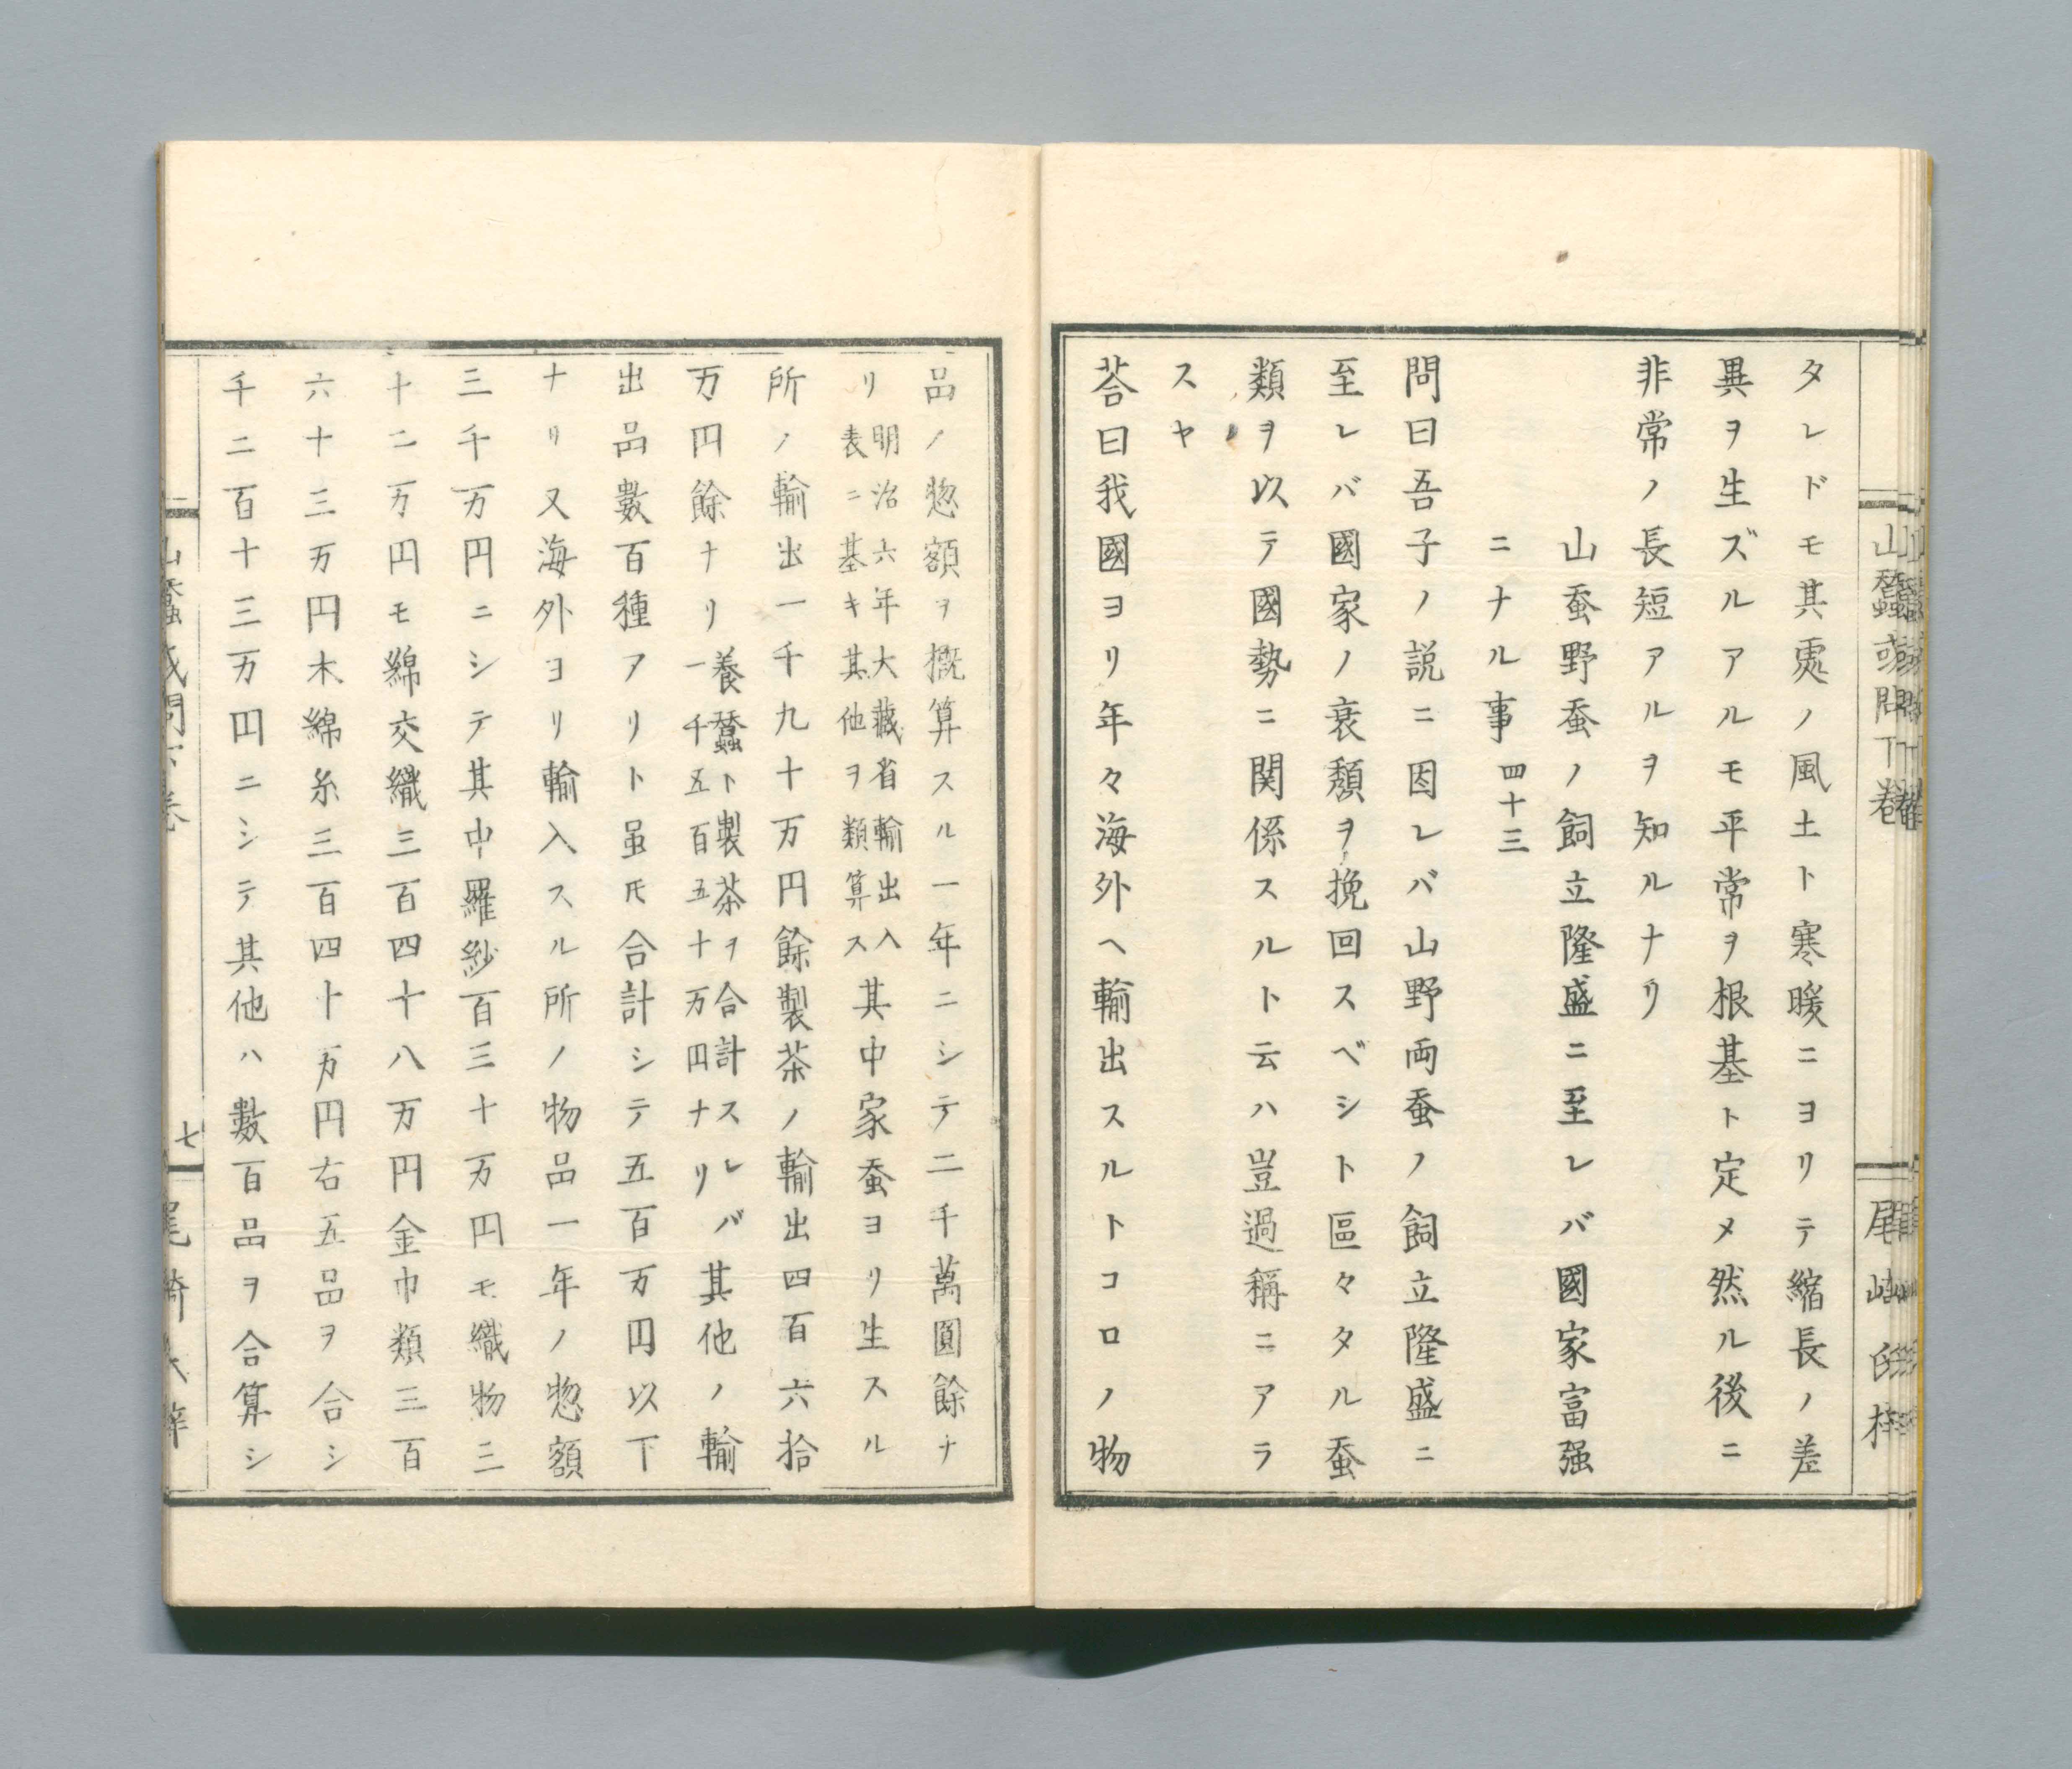 タレドモ其處ノ風土ト寒暖ニヨリテ縮長ノ差
異ヲ生ズルアルモ平常ヲ根基ト定メ然ル後ニ
非常ノ長短アルヲ知ルナリ
山蚕野蚕ノ飼立隆盛ニ至レバ國家富强
ニナル事 四十三
問曰吾子ノ説ニ因レバ山野両蚕ノ飼立隆盛ニ
至レバ國家ノ衰頽ヲ挽回スベシト區々タル蚕
類ヲ以テ國勢ニ関係スルト云ハ豈過稱ニアラ
スヤ
荅曰我國ヨリ年々海外ヘ輸出スルトコロノ物
品ノ惣額ヲ概算スル一年ニシテ二千萬圓餘ナ
リ明治六年大藏省輸出入表ニ基キ其他ヲ類算ス其中家蚕ヨリ生スル
所ノ輸出一千九十万円餘製茶ノ輸出四百六拾
万円餘ナリ養蠶ト製茶ヲ合計スレバ一千五百五十万円ナリ其他ノ輸
出品數百種アリト虽𪜈合計シテ五百万円以下
ナリ又海外ヨリ輸入スル所ノ物品一年ノ惣額
三千万円ニシテ其中羅紗百三十万円モ織物三
十二万円モ綿交織三百四十八万円金巾類三百
六十三万円木綿糸三百四十万円右五品ヲ合シ
千二百十三万円ニシテ其他ハ數百品ヲ合算シ
七